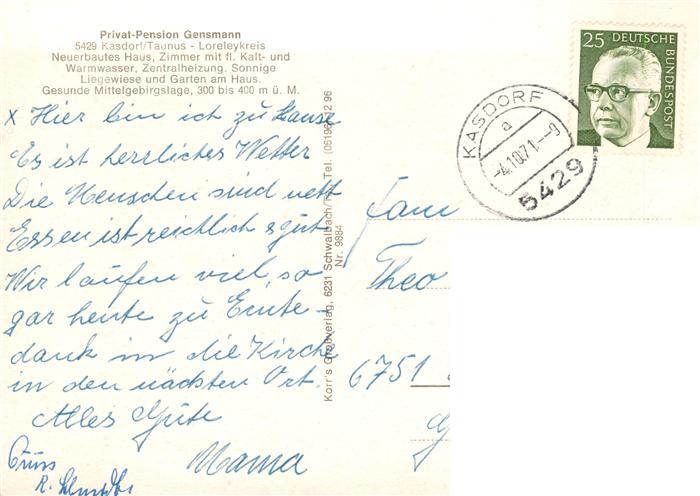 Privat-Pension Gensmann
5429 Kasdorf/Taunus - Loreleykreis
Neuerbautes Haus, Zimmer mit fl. Kalt- und
Warmwasser, Zentralheizung. Sonnige
Liegewiese und Garten am Haus.
Gesunde Mittelgebirgslage, 300 bis 400 m ü. M.
x Hier bin ich zu Hause
Es ist herrliches Wetter
Die Menschen sind nett
Essen ist reichlich & gut
Wir laufen viel, so
gar heute zu Ernte-
dank in die Kirche
in den nächsten Ort.
Alles Gute
Mama
Gruss
R.
Korr's Großverlag, 6231 Schwalbach/Ts., Tel. (06196) 12 96
Nr. 9884
25 DEUTSCHE
BUNDESPOST
KASDORF
a
-4.10.71.-9
5429
Fam
Theo
6751